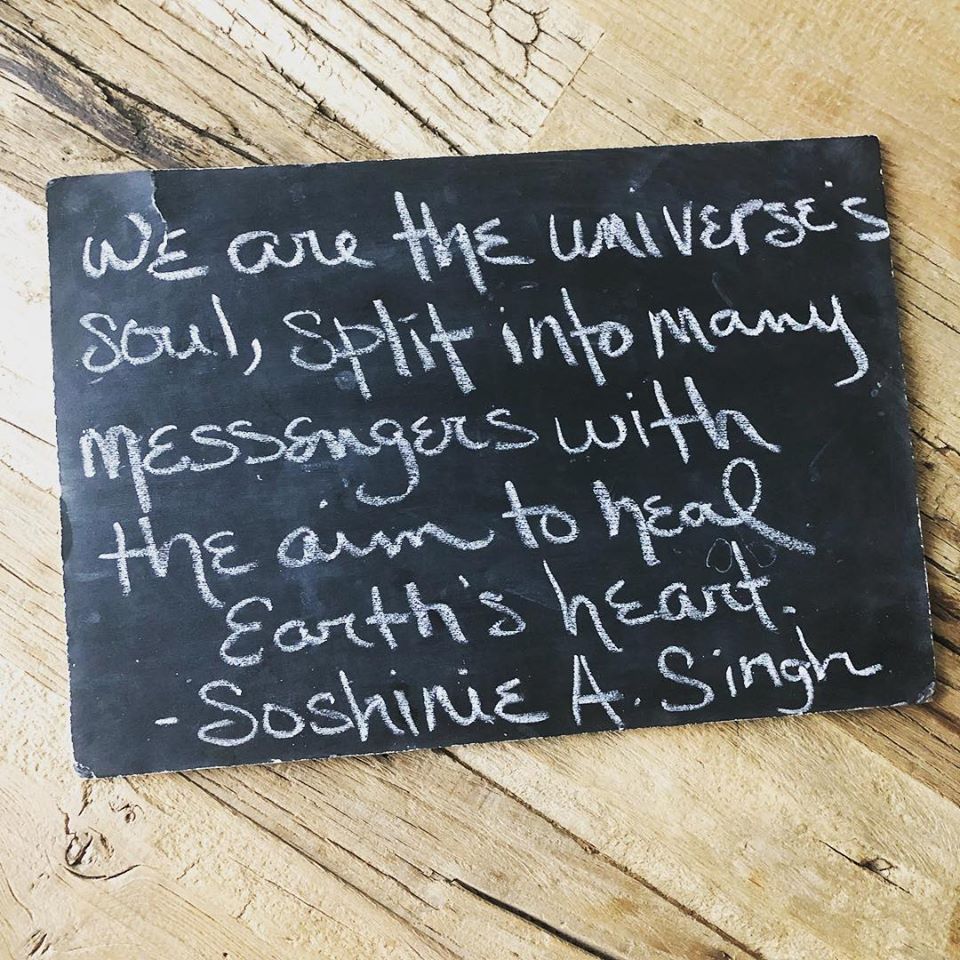 We are the universe's
soul, split into many
messengers with
the aim to heal
Earth's heart.
- Soshinie A. Singh